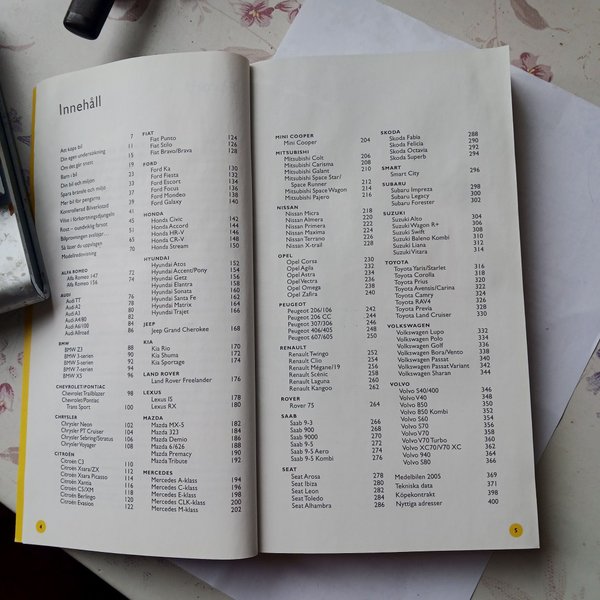 Innehåll
Att köpa bil 7
Din egen undersökning 11
Om det går snett 15
Barn i bil 19
Din bil och miljön
Spara bränsle och miljö
Mer bil för pengarna
Kontrollerad Bilverkstad
Vilse i förkortningsdjungeln
Rost – oundviklig farsot
Bilprovningen avslöjar
Så läser du uppslagen
Modellredovisning
ALFA ROMEO
Alfa Romeo 147 72
Alfa Romeo 156 74
AUDI
Audi TT 76
Audi A2 78
Audi A3 80
Audi A4/80 82
Audi A6/100 84
Audi Allroad 86
BMW
BMW Z3 88
BMW 3-serien 90
BMW 5-serien 92
BMW 7-serien 94
BMW X5 96
CHEVROLET/PONTIAC
Chevrolet Trailblazer 98
Chevrolet/Pontiac
Trans Sport 100
CHRYSLER
Chrysler Neon 102
Chrysler PT Cruiser 104
Chrysler Sebring/Stratus 106
Chrysler Voyager 108
CITROËN
Citroën C3 110
Citroën Xsara/ZX 112
Citroën Xsara Picasso 114
Citroën Xantia 116
Citroën C5/XM 118
Citroën Berlingo 120
Citroën Evasion 122
FIAT
Fiat Punto 124
Fiat Stilo 126
Fiat Bravo/Brava 128
FORD
Ford Ka 130
Ford Fiesta 132
Ford Escort 134
Ford Focus 136
Ford Mondeo 138
Ford Galaxy 140
HONDA
Honda Civic 142
Honda Accord 144
Honda HR-V 146
Honda CR-V 148
Honda Stream 150
HYUNDAI
Hyundai Atos 152
Hyundai Accent/Pony 154
Hyundai Getz 156
Hyundai Elantra 158
Hyundai Sonata 160
Hyundai Santa Fe 162
Hyundai Matrix 164
Hyundai Trajet 166
JEEP
Jeep Grand Cherokee 168
KIA
Kia Rio 170
Kia Shuma 172
Kia Sportage 174
LAND ROVER
Land Rover Freelander 176
LEXUS
Lexus IS 178
Lexus RX 180
MAZDA
Mazda MX-5 182
Mazda 323 184
Mazda Demio 186
Mazda 6/626 188
Mazda Premacy 190
Mazda Tribute 192
MERCEDES
Mercedes A-klass 194
Mercedes C-klass 196
Mercedes E-klass 198
Mercedes CLK-klass 200
Mercedes M-klass 202
4
MINI COOPER
Mini Cooper 204
MITSUBISHI
Mitsubishi Colt 206
Mitsubishi Carisma 208
Mitsubishi Galant 210
Mitsubishi Space Star/
Space Runner 212
Mitsubishi Space Wagon 214
Mitsubishi Pajero 216
NISSAN
Nissan Micra 218
Nissan Almera 220
Nissan Primera 222
Nissan Maxima 224
Nissan Terrano 226
Nissan X-trail 228
OPEL
Opel Corsa 230
Opel Agila 232
Opel Astra 234
Opel Vectra 236
Opel Omega 238
Opel Zafira 240
PEUGEOT
Peugeot 206/106 242
Peugeot 206 CC 244
Peugeot 307/306 246
Peugeot 406/405 248
Peugeot 607/605 250
RENAULT
Renault Twingo 252
Renault Clio 254
Renault Mégane/19 256
Renault Scénic 258
Renault Laguna 260
Renault Kangoo 262
ROVER
Rover 75 264
SAAB
Saab 9-3 266
Saab 900 268
Saab 9000 270
Saab 9-5 272
Saab 9-5 Aero 274
Saab 9-5 Kombi 276
SEAT
Seat Arosa 278
Seat Ibiza 280
Seat Leon 282
Seat Toledo 284
Seat Alhambra 286
SKODA
Skoda Fabia 288
Skoda Felicia 290
Skoda Octavia 292
Skoda Superb 294
SMART
Smart City 296
SUBARU
Subaru Impreza 298
Subaru Legacy 300
Subaru Forester 302
SUZUKI
Suzuki Alto 304
Suzuki Wagon R+ 306
Suzuki Swift 308
Suzuki Baleno Kombi 310
Suzuki Liana 312
Suzuki Vitara 314
TOYOTA
Toyota Yaris/Starlet 316
Toyota Corolla 318
Toyota Prius 320
Toyota Avensis/Carina 322
Toyota Camry 324
Toyota RAV4 326
Toyota Previa 328
Toyota Land Cruiser 330
VOLKSWAGEN
Volkswagen Lupo 332
Volkswagen Polo 334
Volkswagen Golf 336
Volkswagen Bora/Vento 338
Volkswagen Passat 340
Volkswagen Passat Variant 342
Volkswagen Sharan 344
VOLVO
Volvo S40/400 346
Volvo V40 348
Volvo 850 350
Volvo 850 Kombi 352
Volvo S60 354
Volvo S70 356
Volvo V70 358
Volvo V70 Turbo 360
Volvo XC70/V70 XC 362
Volvo 940 364
Volvo S80 366
Medelbilen 2005 369
Tekniska data 371
Köpekontrakt 398
Nyttiga adresser 400
5